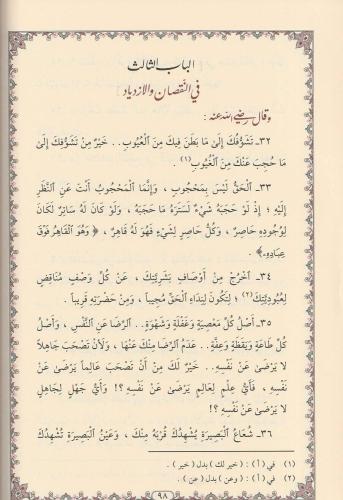 الباب الثالث
في النقصان والازدياد
وقال رضي الله عنه :
٣٢ـ تَشَوُّفُكَ إِلَىٰ مَا بَطَنَ فِيكَ مِنَ ٱلْعُيُوبِ . . خَيْرٌ مِنْ تَشَوُّفِكَ إِلَىٰ
مَا حُجِبَ عَنْكَ مِنَ ٱلْغُيُوبِ (١) .
٣٣ـ ٱلْحَقُّ لَيْسَ بِمَحْجُوبٍ ، وَإِنَّمَا ٱلْمَحْجُوبُ أَنْتَ عَنِ ٱلنَّظَرِ
إِلَيْهِ ؛ إِذْ لَوْ حَجَبَهُ شَيْءٌ لَسَتَرَهُ مَا حَجَبَهُ ، وَلَوْ كَانَ لَهُ سَاتِرٌ لَكَانَ
لِوُجُودِهِ حَاصِرٌ ، وَكُلُّ حَاصِرٍ لِشَيْءٍ فَهُوَ لَهُ قَاهِرٌ ، ﴿ وَهُوَ ٱلْقَاهِرُ فَوْقَ
عِبَادِهِ﴾ .
٣٤ـ ٱخْرُجْ مِنْ أَوْصَافِ بَشَرِيَّتِكَ ، عَنْ كُلِّ وَصْفٍ مُنَاقِضٍ
لِعُبُودِيَّتِكَ (٢) ؛ لِتَكُونَ لِنِدَاءِ ٱلْحَقِّ مُجِيباً ، وَمِنْ حَضْرَتِهِ قَرِيباً .
٣٥ـ أَصْلُ كُلِّ مَعْصِيَةٍ وَغَفْلَةٍ وَشَهْوَةٍ . . ٱلرِّضَا عَنِ ٱلنَّفْسِ ، وَأَصْلُ
كُلِّ طَاعَةٍ وَيَقَظَةٍ وَعِفَّةٍ . . عَدَمُ ٱلرِّضَا مِنْكَ عَنْهَا ، وَلأَنْ تَصْحَبَ جَاهِلاً
لاَ يَرْضَىٰ عَنْ نَفْسِهِ . . خَيْرٌ لَكَ مِنْ أَنْ تَصْحَبَ عَالِماً يَرْضَىٰ عَنْ
نَفْسِهِ ، فَأَيُّ عِلْمٍ لِعَالِمٍ يَرْضَىٰ عَنْ نَفْسِهِ ؟! وَأَيُّ جَهْلٍ لِجَاهِلٍ
لاَ يَرْضَىٰ عَنْ نَفْسِهِ ؟!
٣٦ـ شُعَاعُ ٱلْبَصِيرَةِ يُشْهِدُكَ قُرْبَهُ مِنْكَ ، وَعَيْنُ ٱلْبَصِيرَةِ تُشْهِدُكَ
(١) في ( أ ) : ( خير لك ) بدل ( خير ) .
(٢) في ( أ ) : ( وعن ) بدل ( عن ) .
٩٨